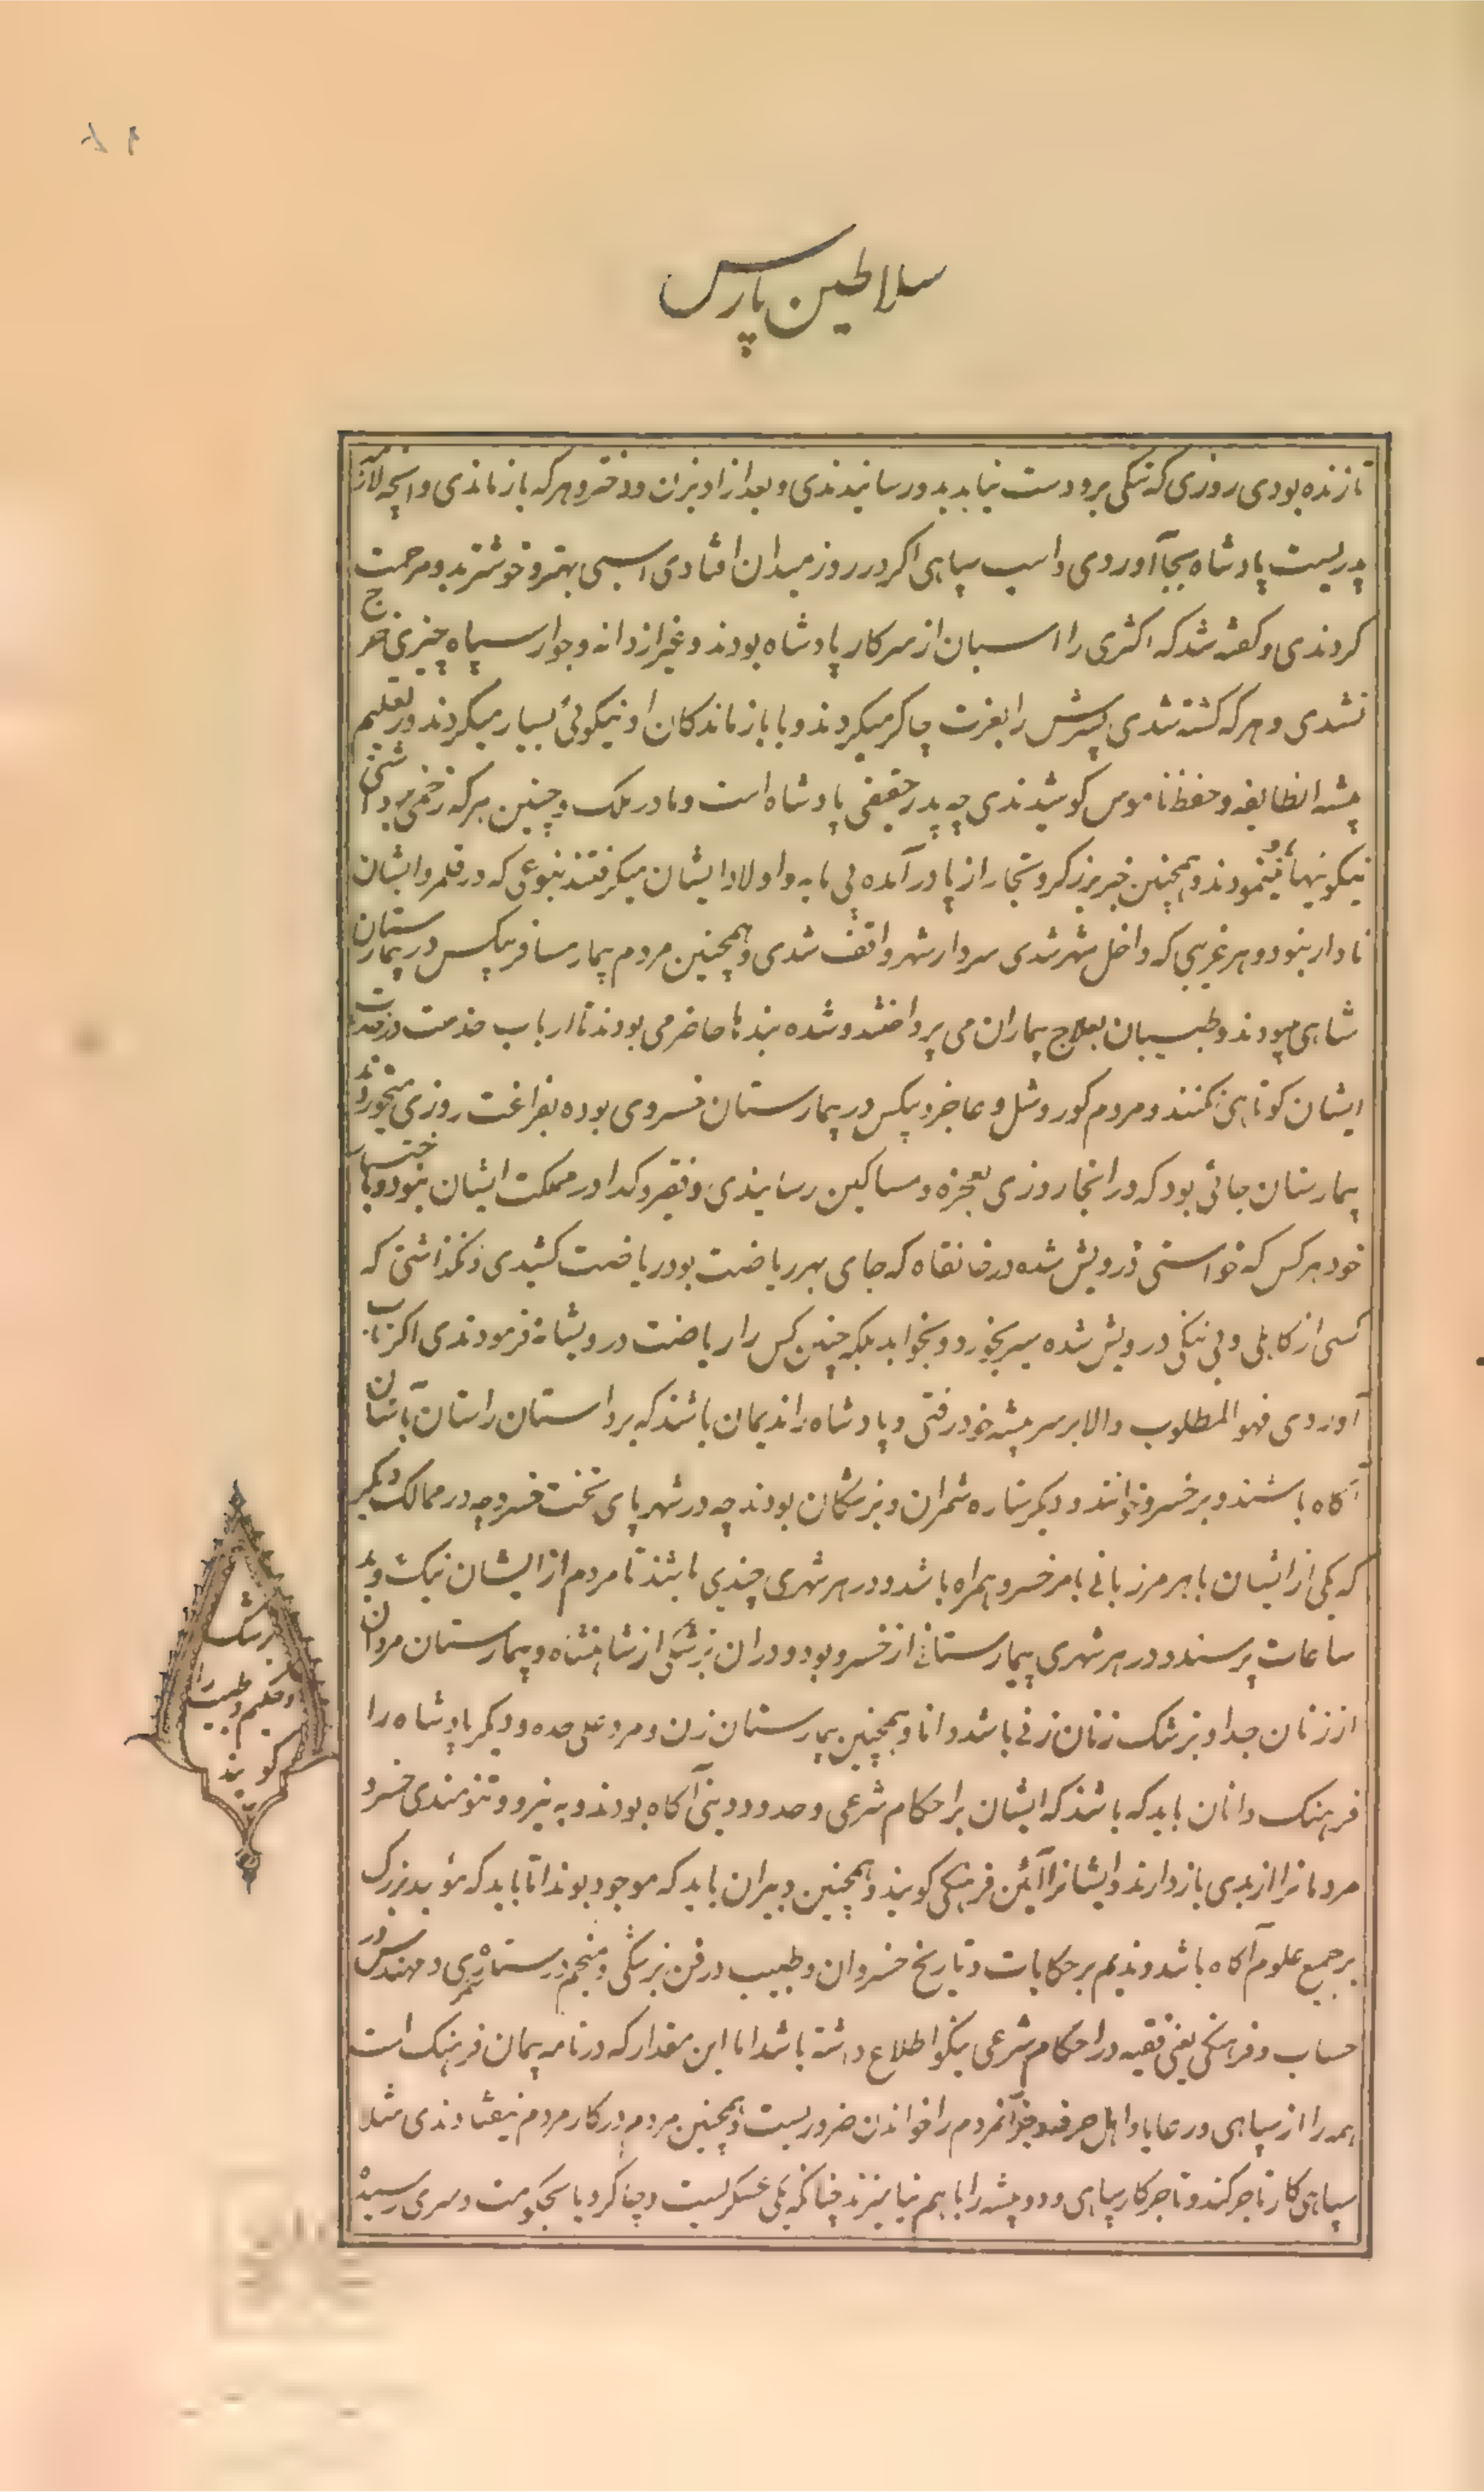 سلاطین پارس
تا زنده بودی روزی که تنکی برو دست نیابد بدو رسانیدندی و بعد از او بزن و دختر و هر که باز ماندی و آنچه لازمه
پدریست پادشاه بجا آوردی و اسب سپاهی اکر در روز میدان افتادی اسبی بهتر و خوشتر بدو مرحمت
کردندی و کفته شد که اکثری را اسبان از سرکار پادشاه بودند و غیر از دانه و جوار سپاه چیزی خرج
نشدی و هر که کشته شدی پسرش را بعزت چاکر میکردند و با بازماندکان او نیکوئی بسیار میکردند و در تعلیم
پیشه انطایفه و حفظ ناموس کوشیدندی چه پدر حقیقی پادشاه است و مادر ملک و چنین هر که زخمی میداشتی
نیکوئیها مینمودند و همچنین خبر برزکر و تجار از پا در آمده بی مایه و اولاد ایشان میکرفتند بنوعی که در قلمرو ایشان
نادار نبود و هر غریبی که داخل شهر شدی سردار شهر واقف شدی و همچنین مردم بیمار مسافر بیکس در بیمارستان
شاهی میبودند و طبیبان بعلاج بیماران می پرداختند و شده بندها حاضر می بودند تا ارباب خدمت در خدمت
ایشان کوتاهی نکنند و مردم کور و شل و عاجز و بیکس در بیمارستان خسروی بوده بفراغت روزی میخوردند
بیمارستان جائی بود که در انجا روزی بعجزه و مساکین رسانیدی و فقیر و کدا در مملکت ایشان نبود و باختیار
خود هر کس که خواستی درویش شده در خانقاه که جای بهر ریاضت بود ریاضت کشیدی و نکذاشتی که
کسی از کاهلی و بی ننکی درویش شده سیر بخورد و بخوابد بلکه چنین کس را ریاضت درویشانه فرمودندی اکر تاب
آوردی فهو المطلوب والا بر سر پیشه خود رفتی و پادشاه را ندیمان باشند که بر داستان راستان باستان
آکاه باشند و بر خسرو خوانند و دیکر ستاره شمران و بزشکان بودند چه در شهر پای تخت خسرو چه در ممالک دیکر
که یکی از ایشان با هر مرزبانی بامر خسرو همراه باشد و در هر شهری چندی باشند تا مردم از ایشان نیک و بد
ساعات پرسند و در هر شهری بیمارستانی از خسرو بود و در ان بزشکی از شاهنشاه و بیمارستان مردان
از زنان جدا و بزشک زنان زنی باشد دانا و همچنین بیمارستان زن و مرد علی حده و دیکر پادشاه را
فرهنک دانان باید که باشند که ایشان بر احکام شرعی و حدود دینی آکاه بودند و به نیرو و تنومندی خسرو
مردمانرا از بدی باز دارند و ایشانرا آئین فرهنکی کویند و همچنین دبیران باید که موجود بوند اما باید که مؤبد بزرک
بر جمیع علوم آکاه باشد و ندیم بر حکایات و تاریخ خسروان و طبیب در فن بزشکی و منجم در ستاره شمری و مهندس در
حساب و فرهنکی یعنی فقیه در احکام شرعی نیکو اطلاع داشته باشد اما این مقدار که در نامه پیمان فرهنک است
همه را از سپاهی و رعایا و اهل حرفه و خوانمردم را خواندن ضروریست و همچنین مردم در کار مردم نیفتادندی مثلا
سپاهی کار تاجر کند و تاجر کار سپاهی و دو پیشه را باهم نیامیزند چنانکه یکی عسکریست و چاکر و یا بحکومت و سری رسیده
بزشک
حکیم و طبیب را
کویند